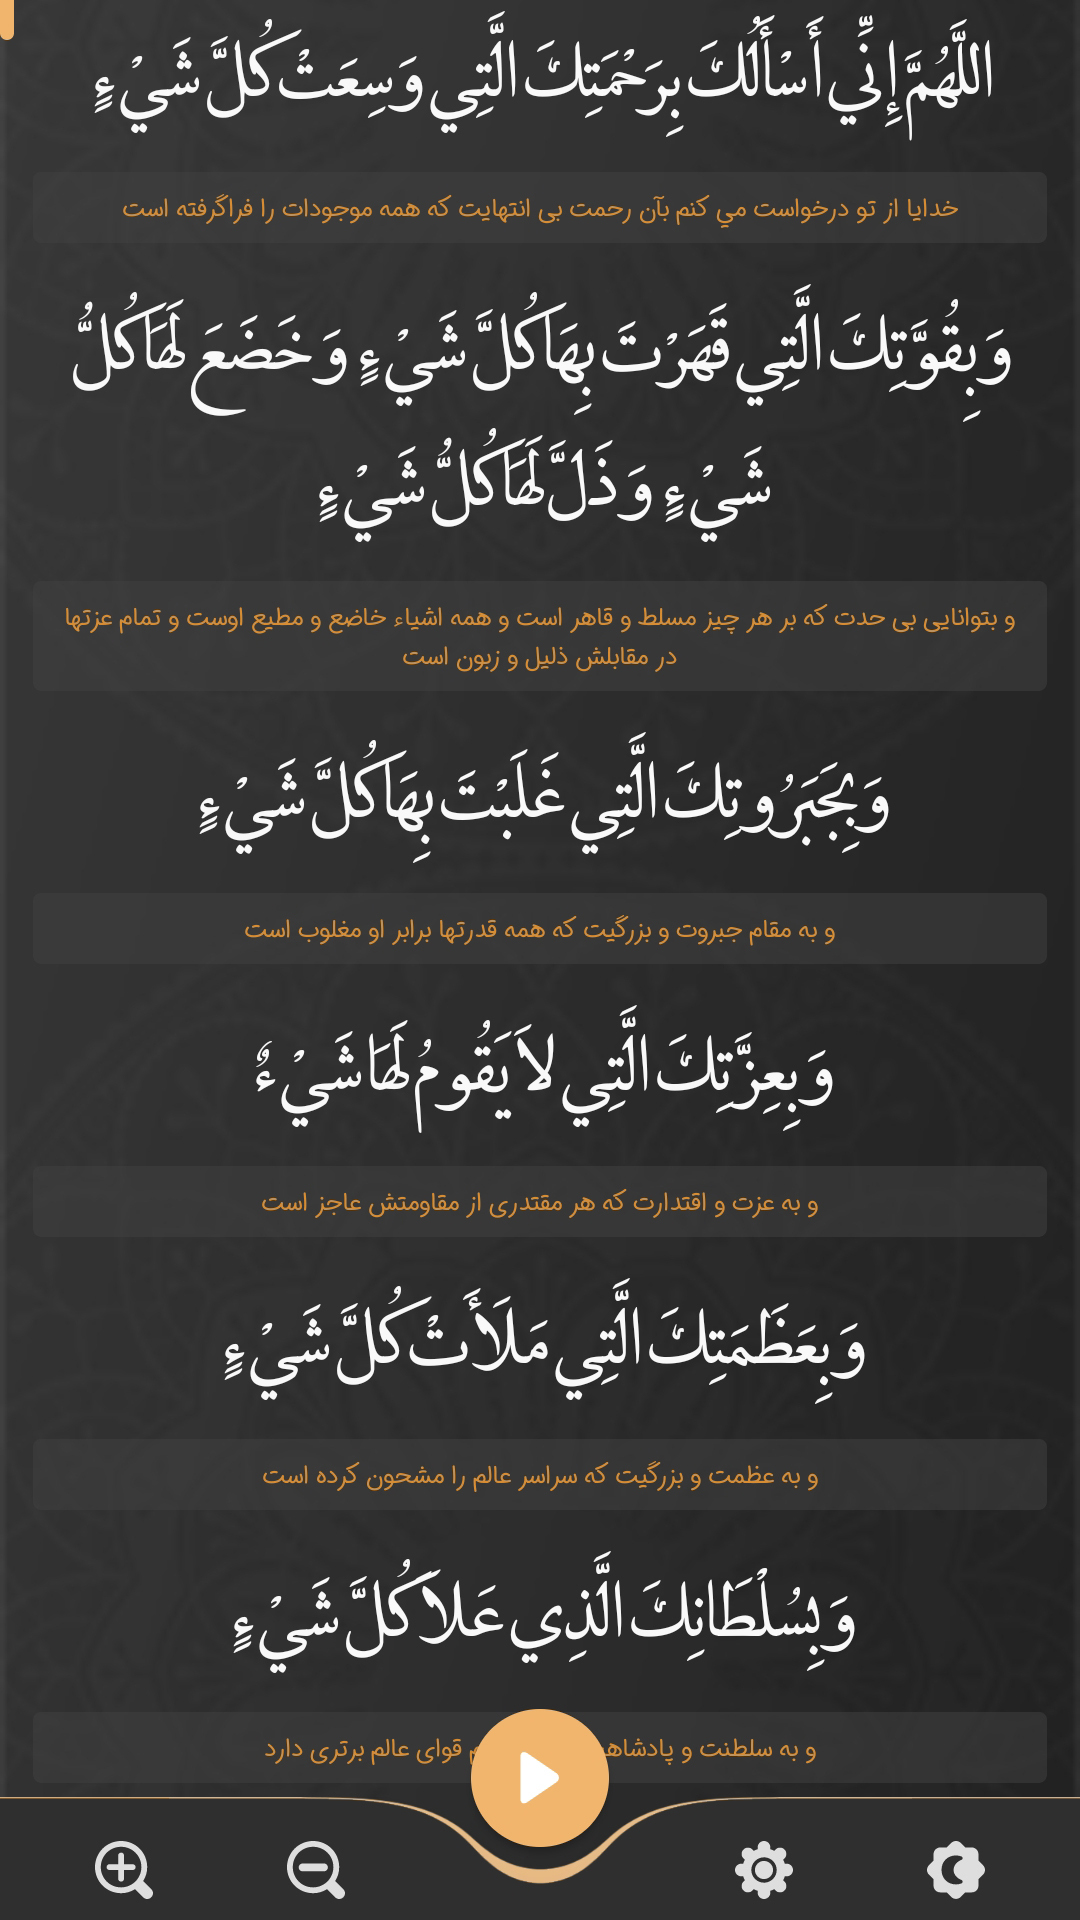 اللَّهُمَّ إِنِّي أَسْأَلُكَ بِرَحْمَتِكَ الَّتِي وَسِعَتْ كُلَّ شَيْءٍ
خدایا از تو درخواست مي کنم بآن رحمت بی انتهایت که همه موجودات را فراگرفته است
وَ بِقُوَّتِكَ الَّتِي قَهَرْتَ بِهَا كُلَّ شَيْءٍ وَ خَضَعَ لَهَا كُلُّ
شَيْءٍ وَ ذَلَّ لَهَا كُلُّ شَيْءٍ
و بتوانایی بی حدت که بر هر چیز مسلط و قاهر است و همه اشیاء خاضع و مطیع اوست و تمام عزتها
در مقابلش ذلیل و زبون است
وَ بِجَبَرُوتِكَ الَّتِي غَلَبْتَ بِهَا كُلَّ شَيْءٍ
و به مقام جبروت و بزرگیت که همه قدرتها برابر او مغلوب است
وَ بِعِزَّتِكَ الَّتِي لاَ يَقُومُ لَهَا شَيْءٌ
و به عزت و اقتدارت که هر مقتدری از مقاومتش عاجز است
وَ بِعَظَمَتِكَ الَّتِي مَلَأَتْ كُلَّ شَيْءٍ
و به عظمت و بزرگیت که سراسر عالم را مشحون کرده است
وَ بِسُلْطَانِكَ الَّذِي عَلاَ كُلَّ شَيْءٍ
و به سلطنت و قوای عالم برتری دارد